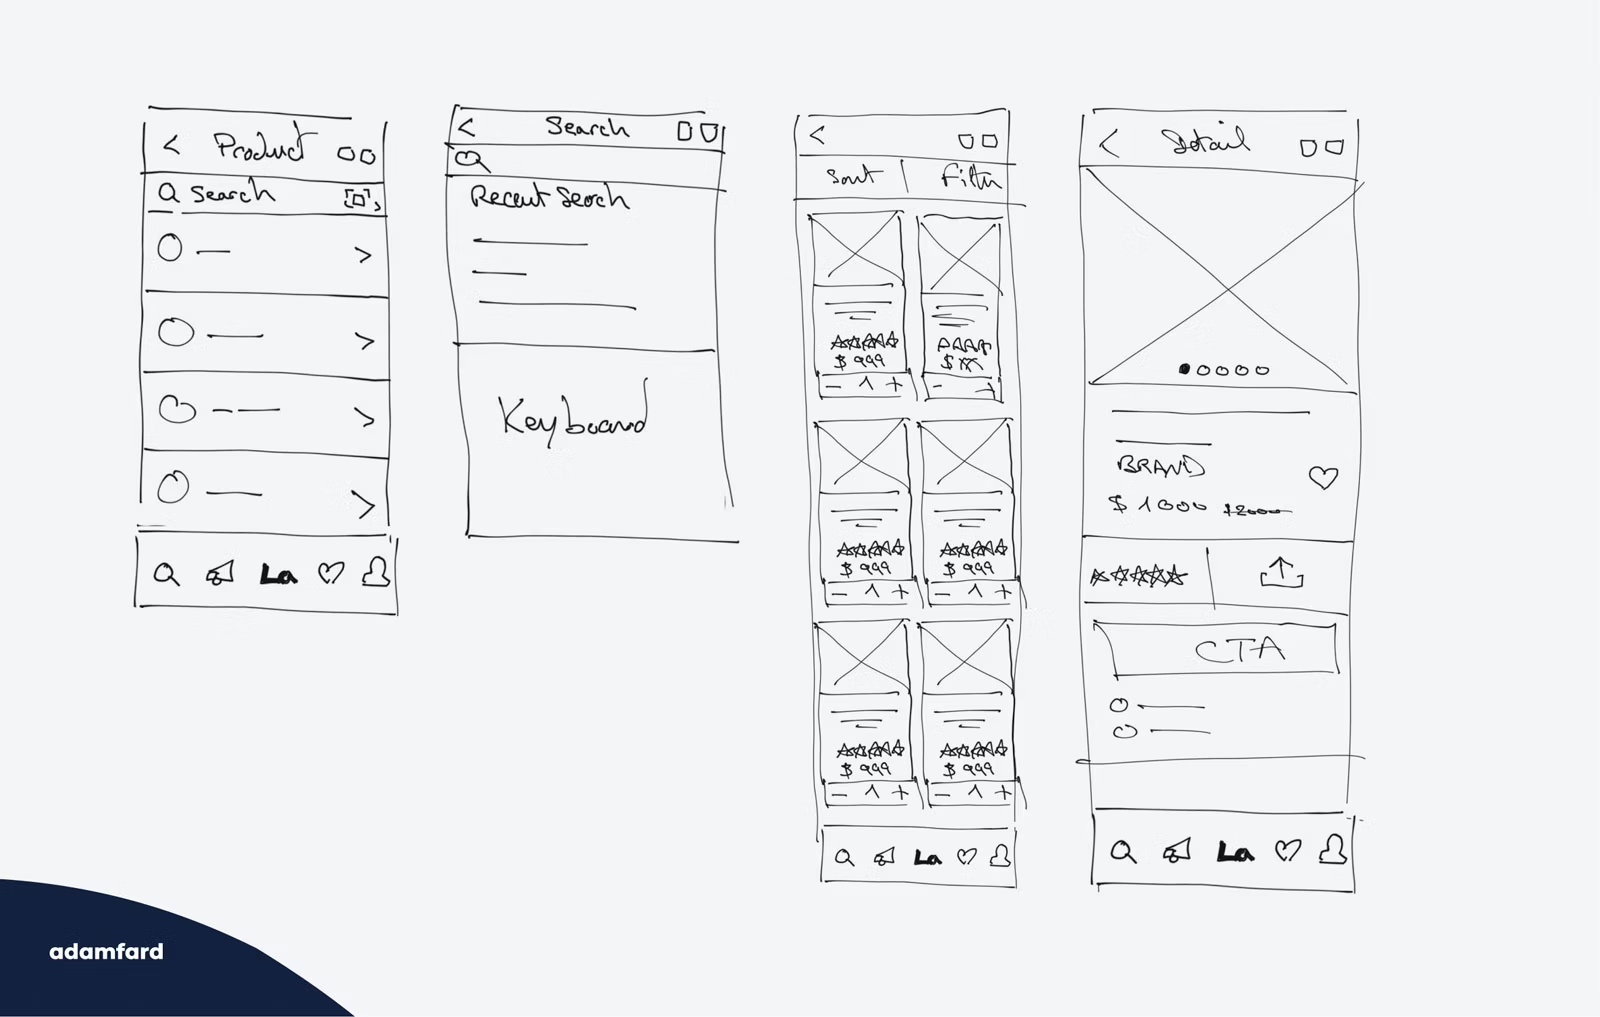 Product
Search
Search
Recent Search
Keyboard
Sort
Filter
$ 999
- 1 +
$ 999
- 1 +
$ 999
- 1 +
$ 999
- 1 +
$ 999
- 1 +
Detail
BRAND
$ 1000 $2000
CTA
La
La
La
adamfard